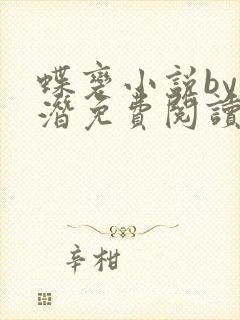 蝶裦小説by
潛免費閱讀
辛柑